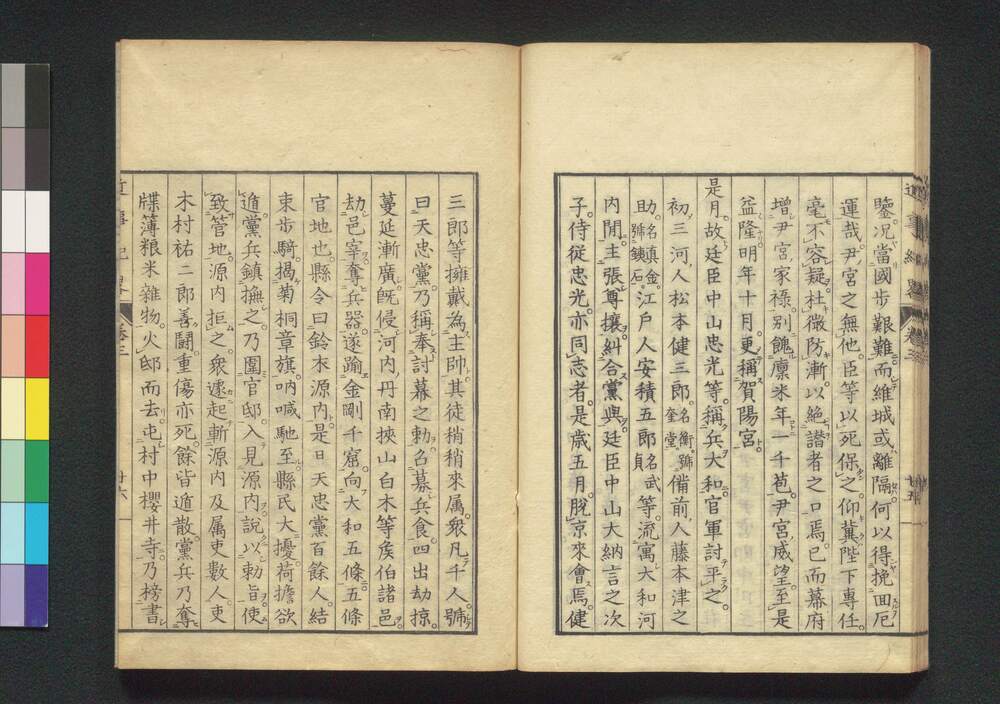 鑒。况當國步艱難。而維城或離隔。何以得挽回厄
運哉。尹宮之無他。臣等以死保之。仰冀陛下專任。
毫不容疑。杜微防漸。以絶讃者之口焉。已而幕府
增尹宮家祿。別餽廩米年一千苞。尹宮威望至是
益隆。明年十月。更稱賀陽宮。
是月。故廷臣中山忠光等。稱兵大和。官軍討平之。
初三河人松本健三郎。名衡。號奎堂備前人藤本津之
助。名眞金。號鐵石。江戶人安積五郎名武貞等。流寓大和河
內閒。主張尊攘。糾合黨與。廷臣中山大納言之次
子。侍從忠光。亦同志者。是歲五月。脫京來會焉。健
三郎等擁戴為主帥。其徒稍稍來屬。衆凡千人。號
曰天忠黨。乃稱奉討幕之勅。召募兵食。四出劫掠。
蔓延漸廣。旣侵河內。丹南挾山白木等矦伯諸邑。
劫邑宰奪兵器。遂踰金剛千窟。向大和五條。五條
官地也。縣令曰鈴木源內。是日天忠黨百餘人。結
束步騎。揭菊桐章旗。吶喊馳至。縣民大擾。荷擔欲
遁。黨兵鎮撫之。乃圍官邸。入見源內。說以勅旨使
致管地。源內拒之。衆遽起斬源內及属吏數人。吏
木村祐二郎善鬪。重傷亦死。餘皆遁散。黨兵乃奪
牒簿粮米雜物。火邸而去。屯村中櫻井寺。乃榜書
近事紀畧
卷三
廿六